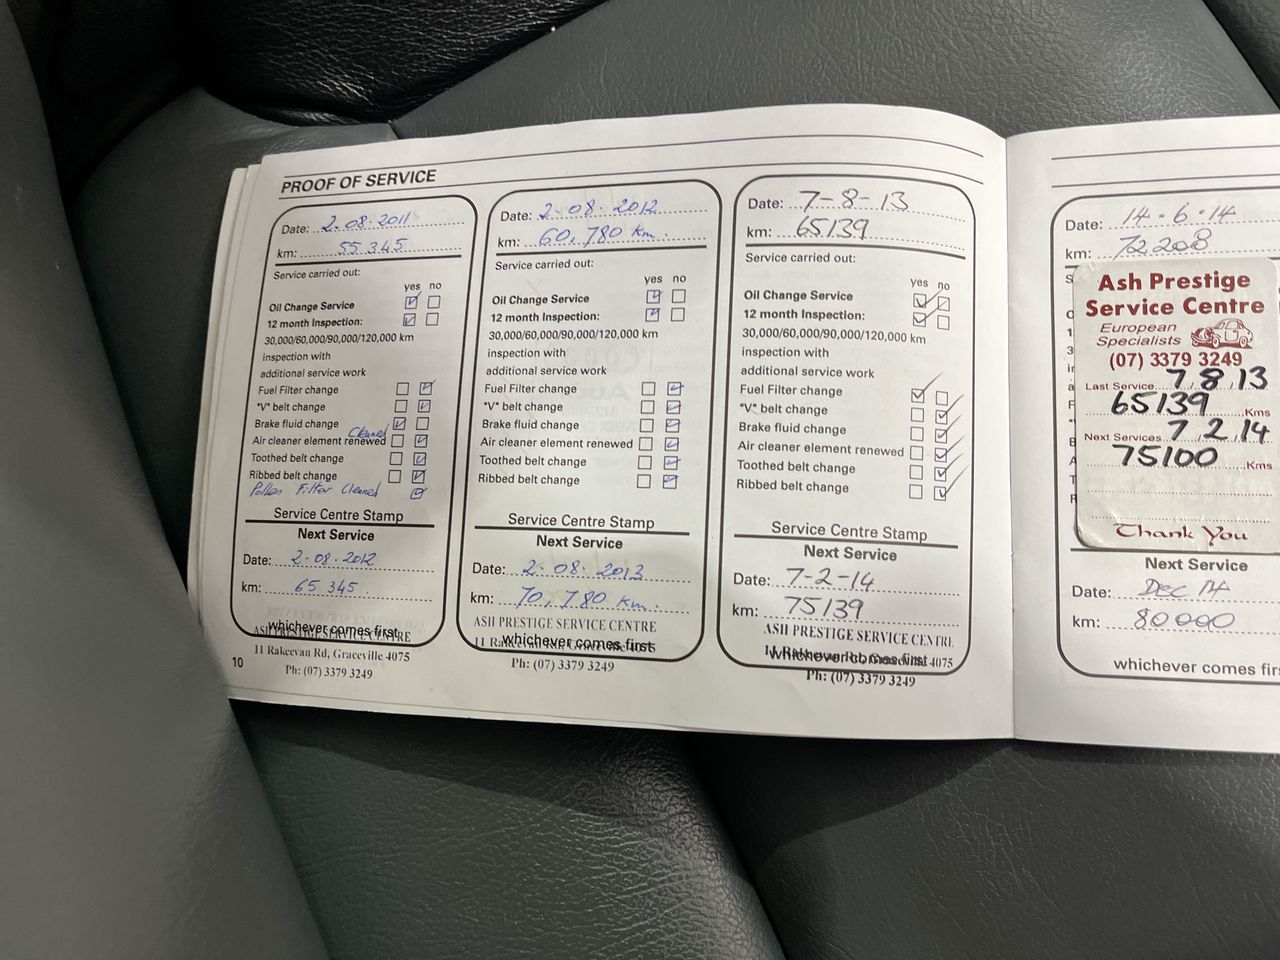 PROOF OF SERVICE
Date: 2·08·2011
km: 55 345
Service carried out:
yes no
Oil Change Service
12 month Inspection:
30,000/60,000/90,000/120,000 km
inspection with
additional service work
Fuel Filter change
"V" belt change
Brake fluid change
Cleaned
Air cleaner element renewed
Toothed belt change
Ribbed belt change
Pollen Filter Cleaned
Service Centre Stamp
Next Service
Date: 2·08·2012
km: 65 345
whichever comes first
ASH PRESTIGE SERVICE CENTRE
11 Rakeevan Rd, Graceville 4075
Ph: (07) 3379 3249
10
Date: 2·08·2012
km: 60,780 km.
Service carried out:
yes no
Oil Change Service
12 month Inspection:
30,000/60,000/90,000/120,000 km
inspection with
additional service work
Fuel Filter change
"V" belt change
Brake fluid change
Air cleaner element renewed
Toothed belt change
Ribbed belt change
Service Centre Stamp
Next Service
Date: 2·08·2013
km: 70,780 km.
ASH PRESTIGE SERVICE CENTRE
11 Rakeevan Rd, Graceville 4075
whichever comes first
Ph: (07) 3379 3249
Date: 7-8-13
km: 65139
Service carried out:
yes no
Oil Change Service
12 month Inspection:
30,000/60,000/90,000/120,000 km
inspection with
additional service work
Fuel Filter change
"V" belt change
Brake fluid change
Air cleaner element renewed
Toothed belt change
Ribbed belt change
Service Centre Stamp
Next Service
Date: 7-2-14
km: 75139
ASH PRESTIGE SERVICE CENTRE
11 Rakeevan Rd, Graceville 4075
whichever comes first
Ph: (07) 3379 3249
Date: 14·6·14
km: 72208
Ash Prestige
Service Centre
European
Specialists
(07) 3379 3249
Last Service 7/8/13
65139 Kms
Next Services 7/2/14
75100 Kms
Thank You
Next Service
Date: Dec 14
km: 80000
whichever comes firs